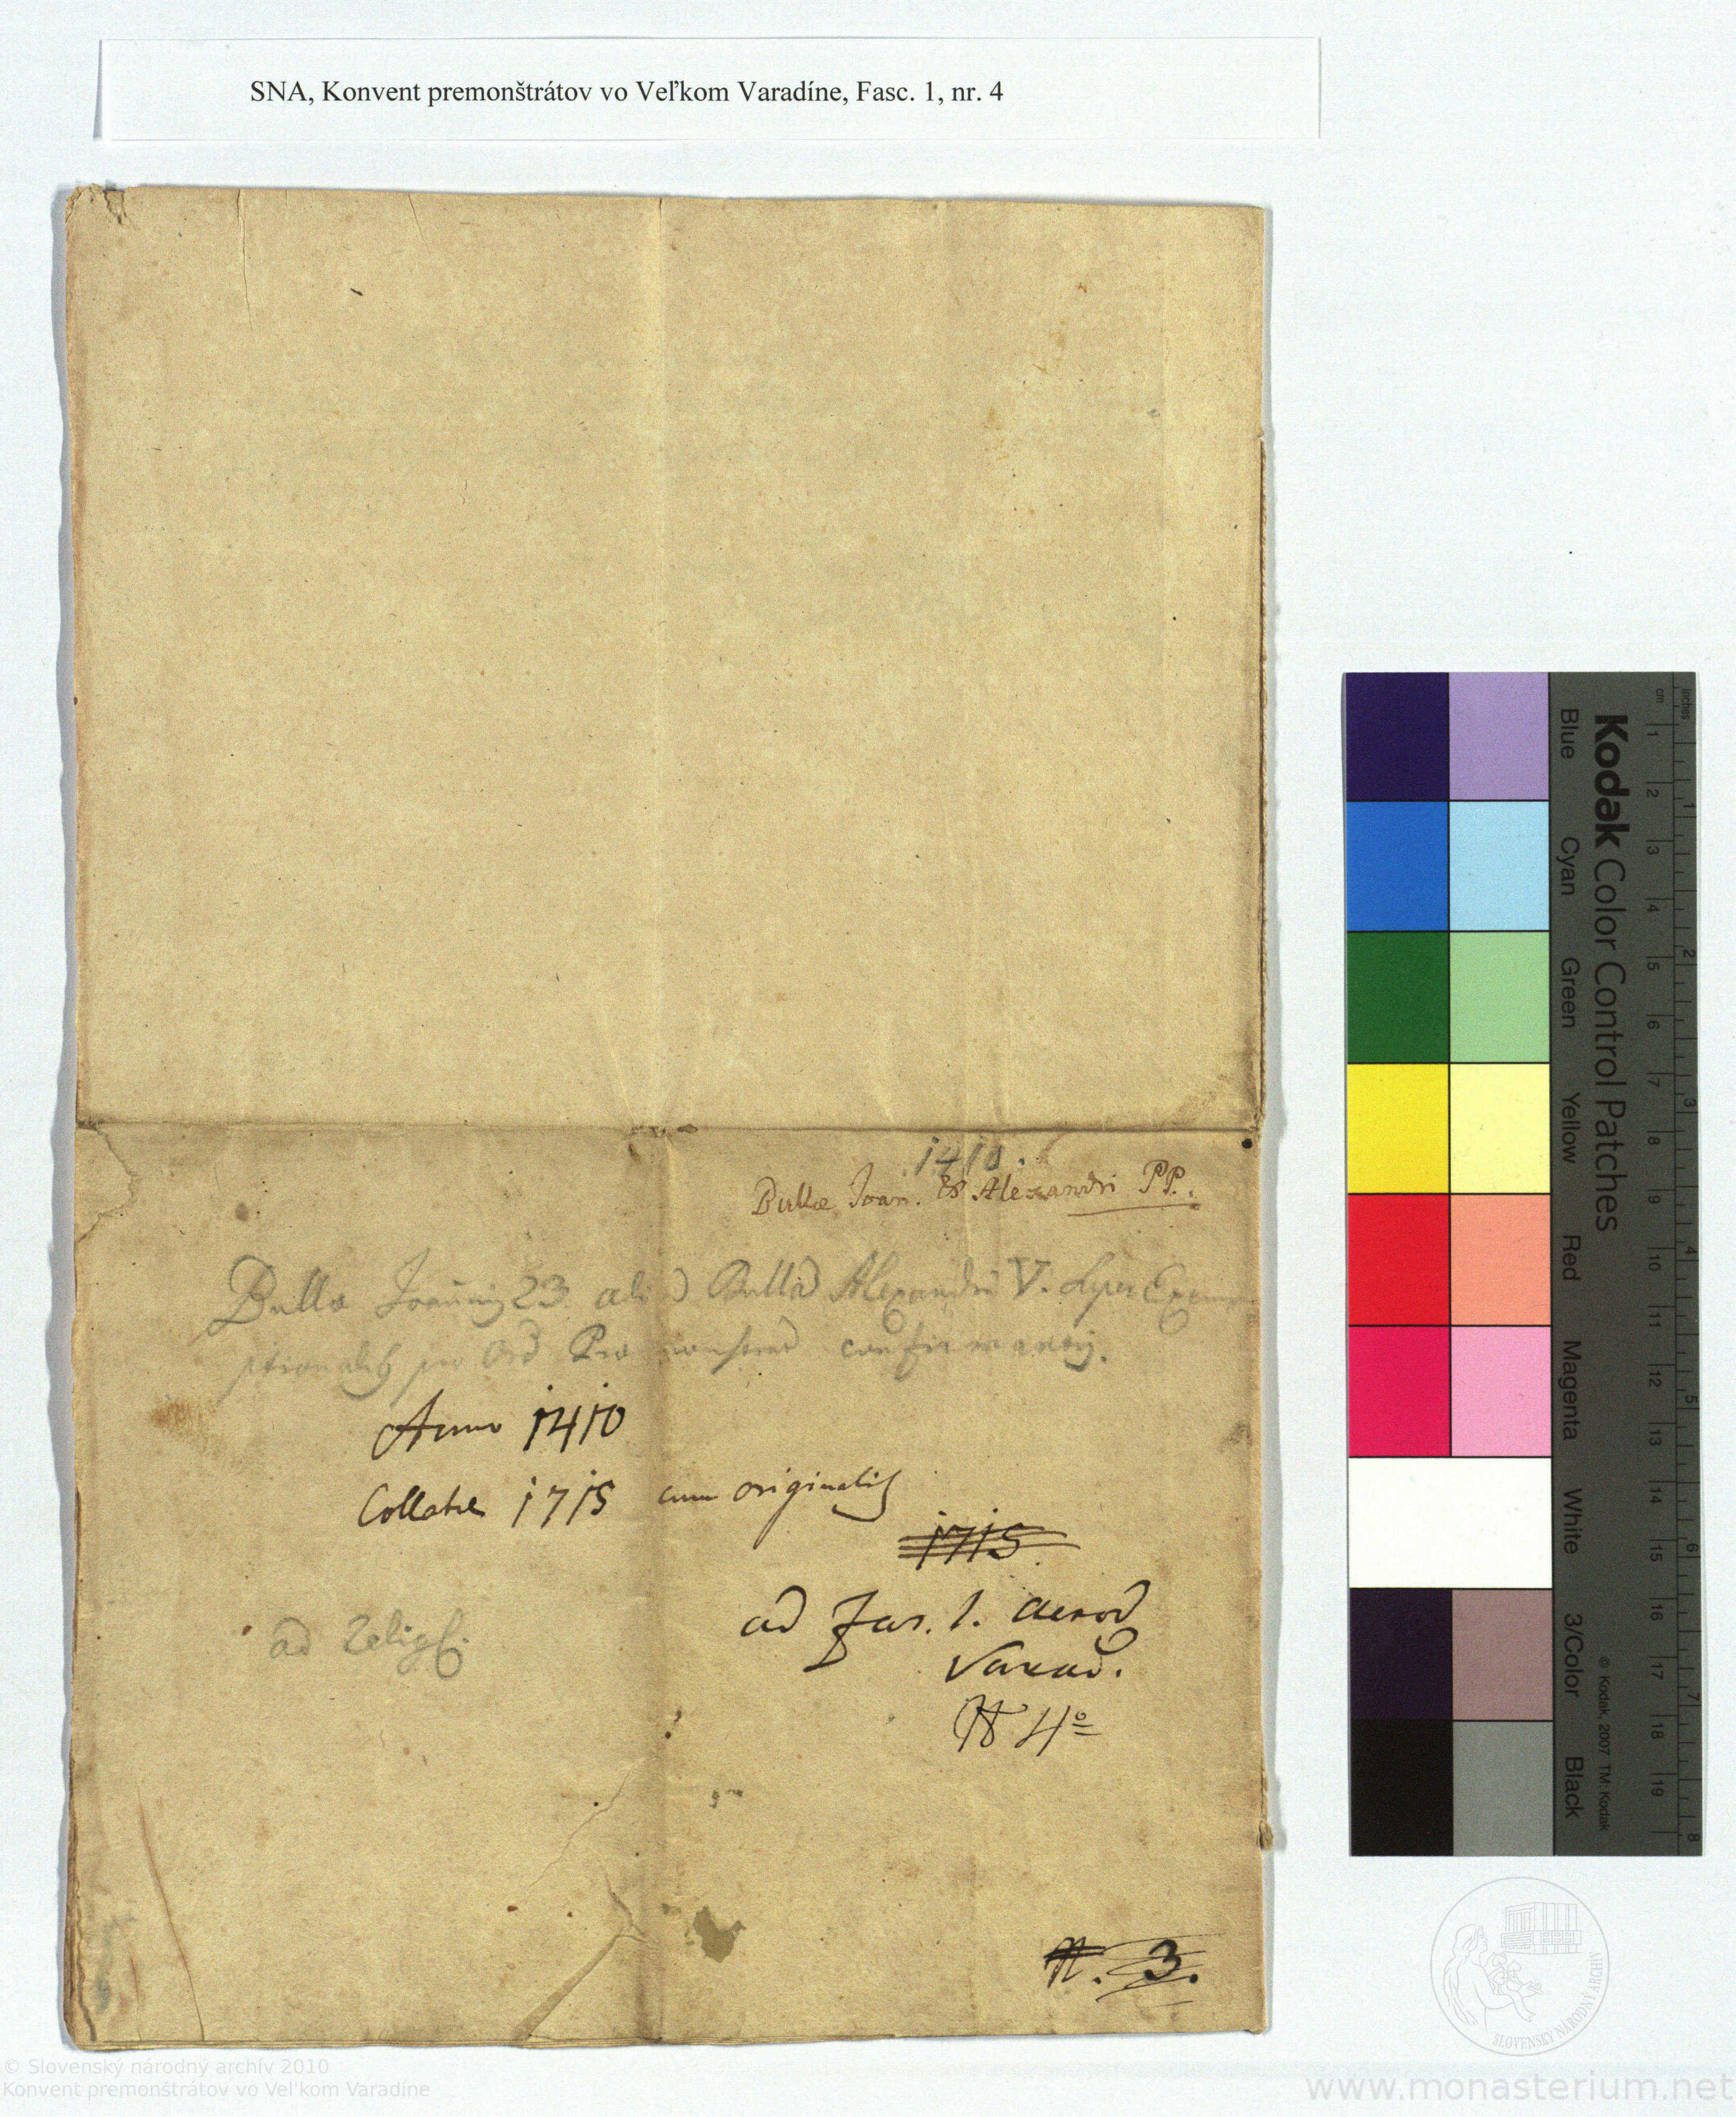 SNA, Konvent premonštrátov vo Veľkom Varadíne, Fasc. 1, nr. 4
1410.
Bullæ Joan. & Alexandri PP.
Bulla 23. Bullã Alexandri V. super
pro Ord confirmantis.
Anno 1410
Collatæ 1715 cum originalib
1715.
ad Fas. 1.
Varad.
N 4º
N. 3.
Kodak Color Control Patches
Blue Cyan Green Yellow Red Magenta White 3/Color Black
© Kodak, 2007 TM: Kodak
inches 1 2 3 4 5 6 7 8
cm 1 2 3 4 5 6 7 8 9 10 11 12 13 14 15 16 17 18 19
SLOVENSKÝ NÁRODNÝ ARCHÍV
© Slovenský národný archív 2010
Konvent premonštrátov vo Veľkom Varadíne
www.monasterium.net